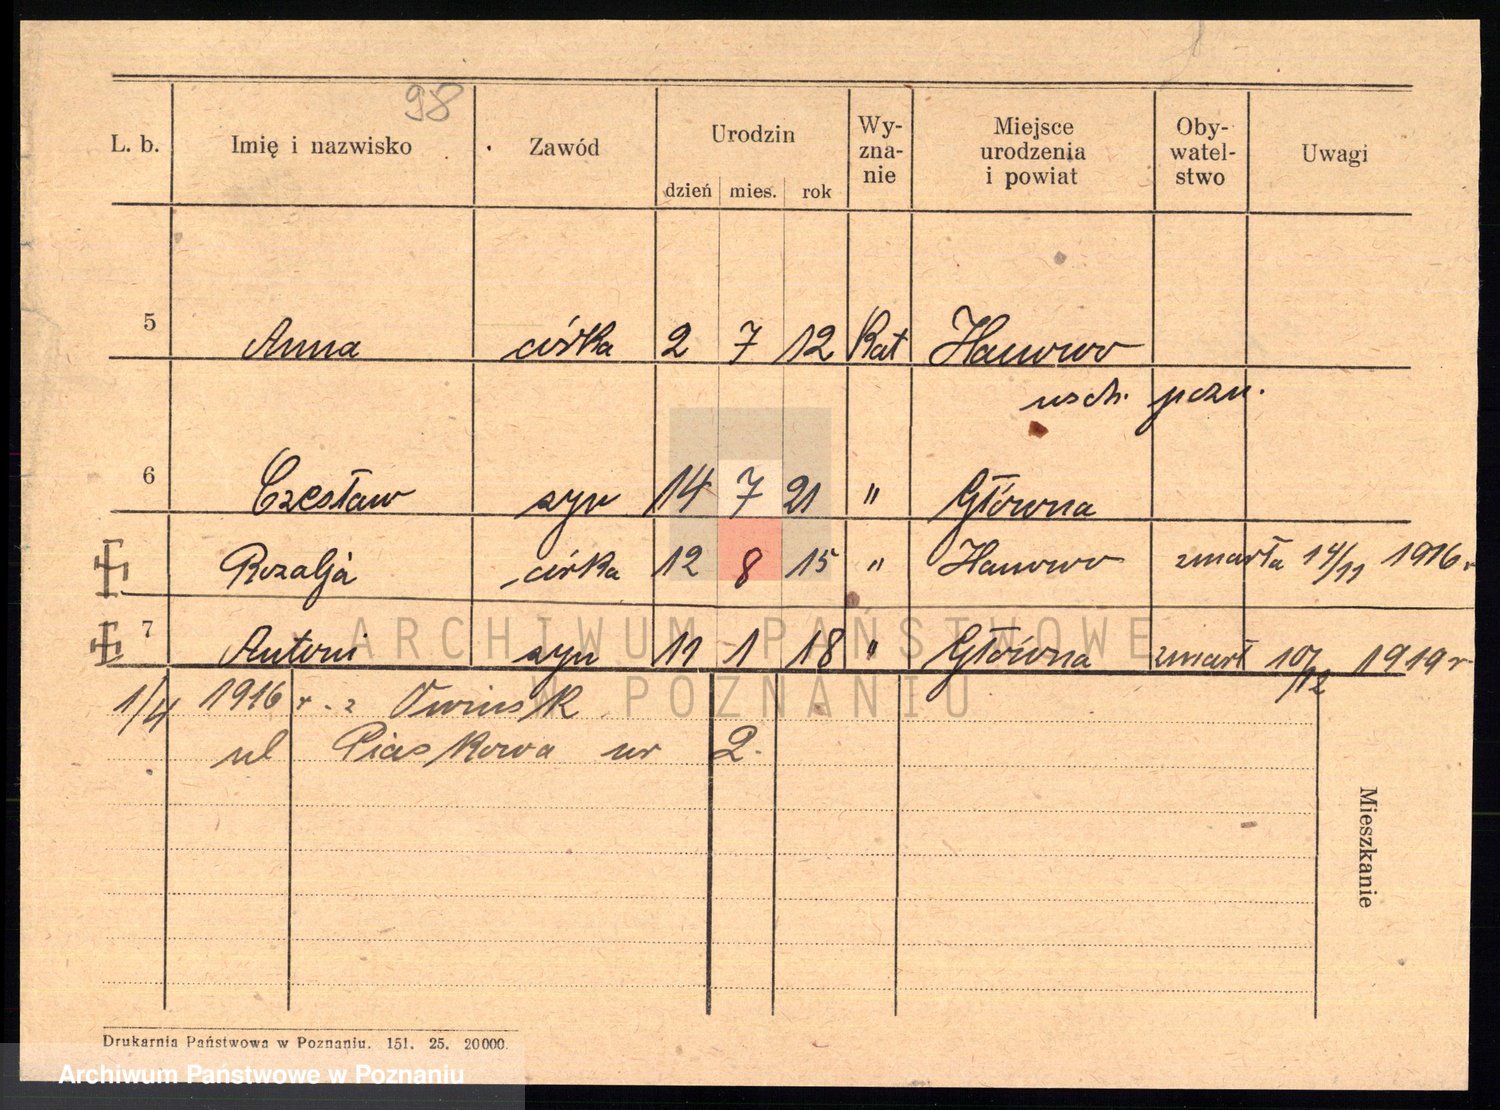 98
L. b. Imię i nazwisko Zawód Urodzin dzień mies. rok Wy-zna-nie Miejsce urodzenia i powiat Oby-watel-stwo Uwagi
5 Anna córka 2 7 12 Kat Hanowo
wsch. pozn.
6 Czesław syn 14 7 21 " Główna
Rozalja córka 12 8 15 " Hanowo zmarła 14/11 1916 r.
7 Antoni syn 11 1 18 " Główna zmarł 10/12 1919 r
ARCHIWUM PAŃSTWOWE
W POZNANIU
1/4 1916 r. z Owinsk
ul Piaskowa nr 2.
Mieszkanie
Drukarnia Państwowa w Poznaniu. 151. 25. 20000.
Archiwum Państwowe w Poznaniu